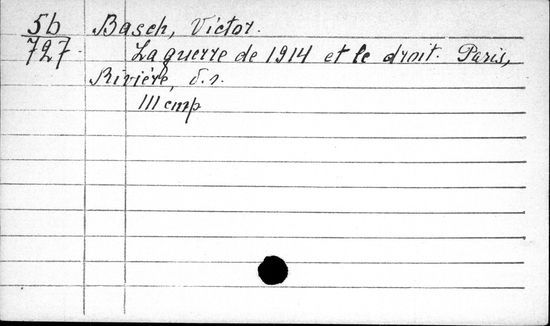 5b Basch, Victor.
727. La guerre de 1914 et le droit. Paris,
Rivière, s.
111 cmp